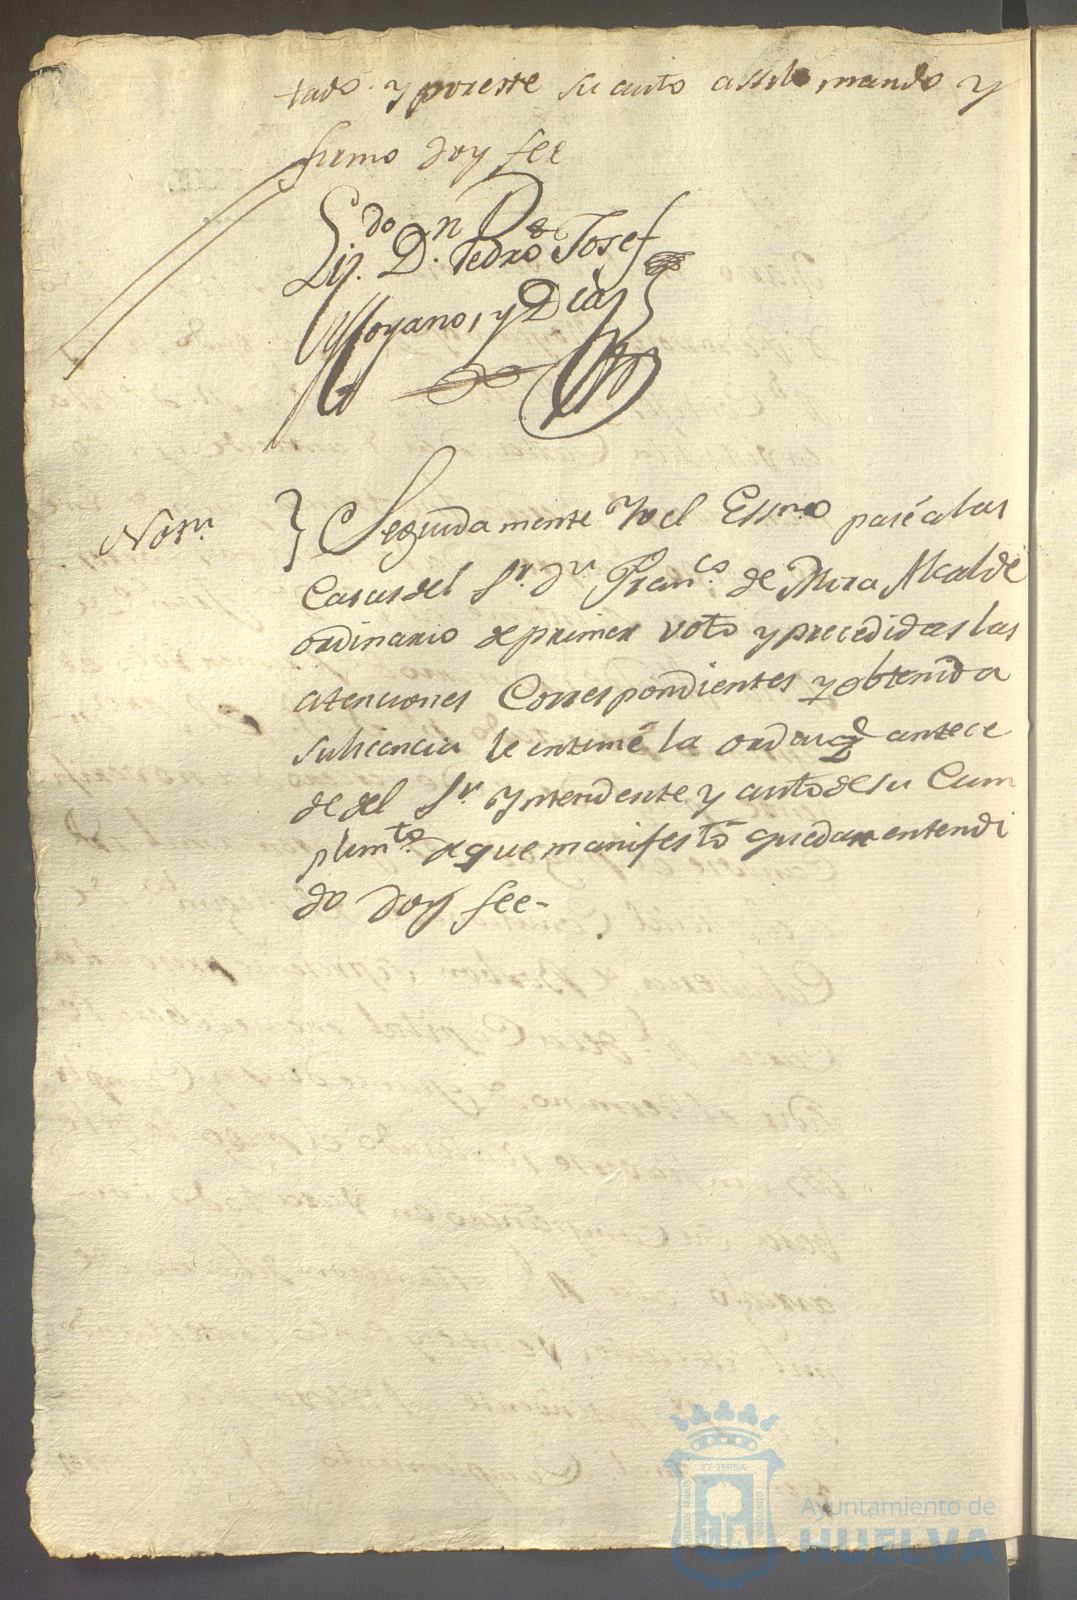 tado. y por este su auto assi lo mando y
firmo doy fee
Lizdo. Dn. Pedro Josef
Moyano, y Dias
Notn.
Seguidamente Yo el Essno pasé a las
Casas del Sr. Dn Franco. de Mora Alcalde
ordinario de primer voto y precedidas las
atenciones Correspondientes y obtenida
su licencia le intimé la orden que antece
de del Sr. Yntendente y auto de su Cum
plimto. de que manifestó quedar entendi
do doy fee-
Ayuntamiento de
HUELVA